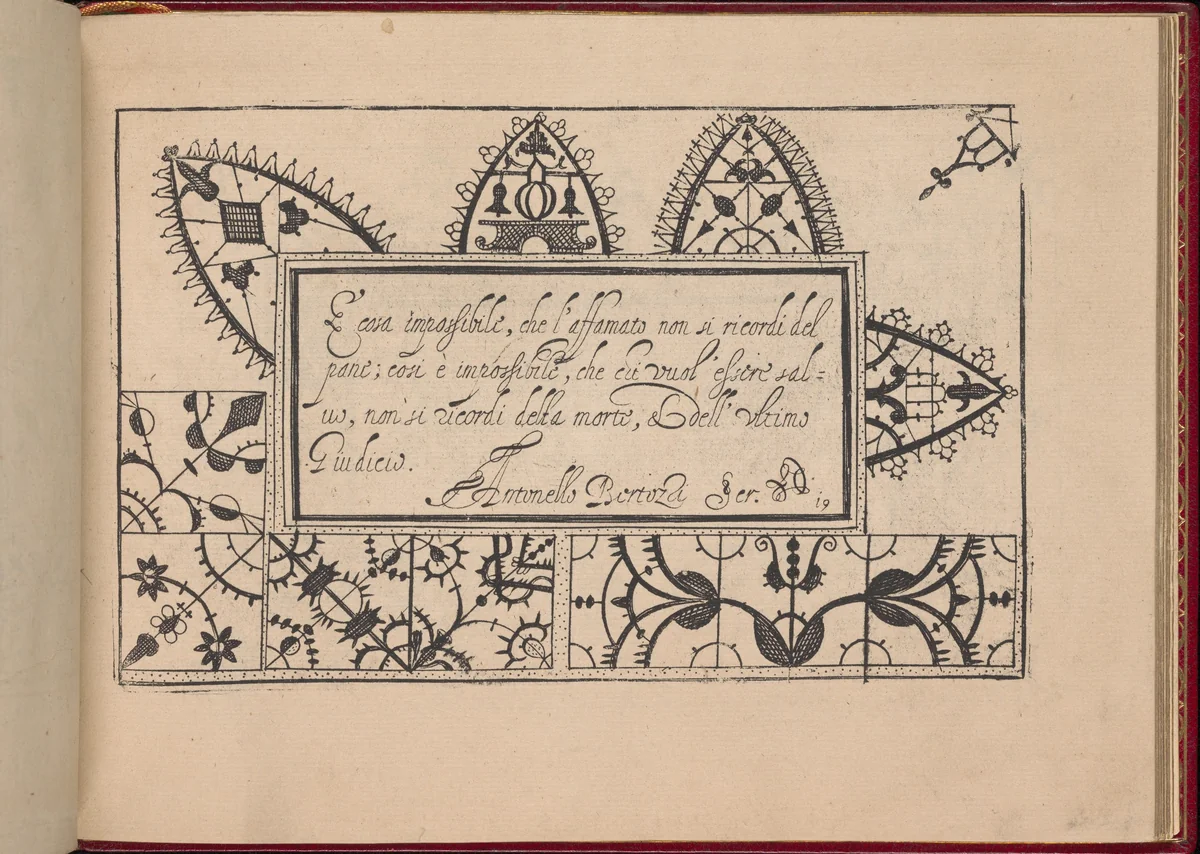 E cosa impossibile, che l'affamato non si ricordi del
pane; così è impossibile, che chi vuol' essere sal=
uo, non si ricordi della morte, & dell' vltimo
Giudicio.
Antonello Bertozzi Scr. 19